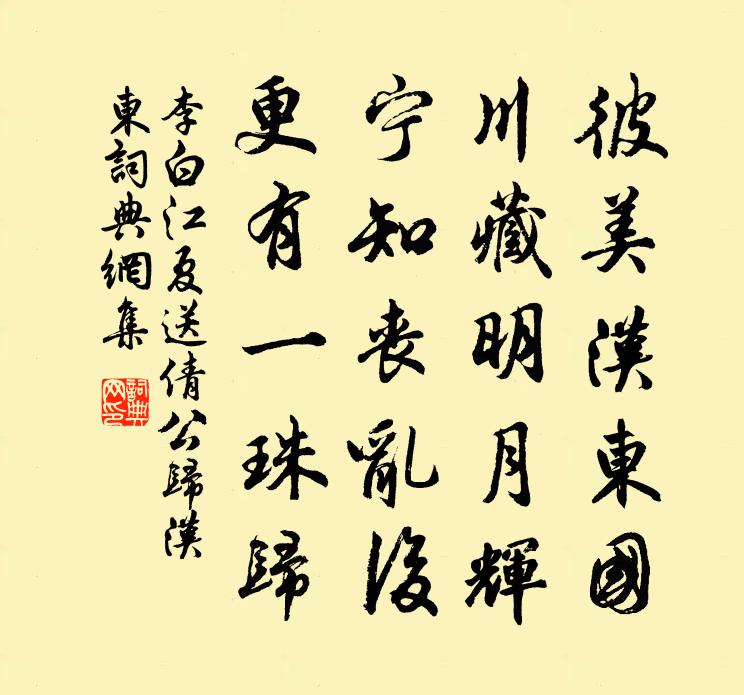 彼美漢東國
川藏明月輝
宁知喪亂後
更有一珠歸
李白江夏送倩公歸漢
東詞典網集
詞典
网印